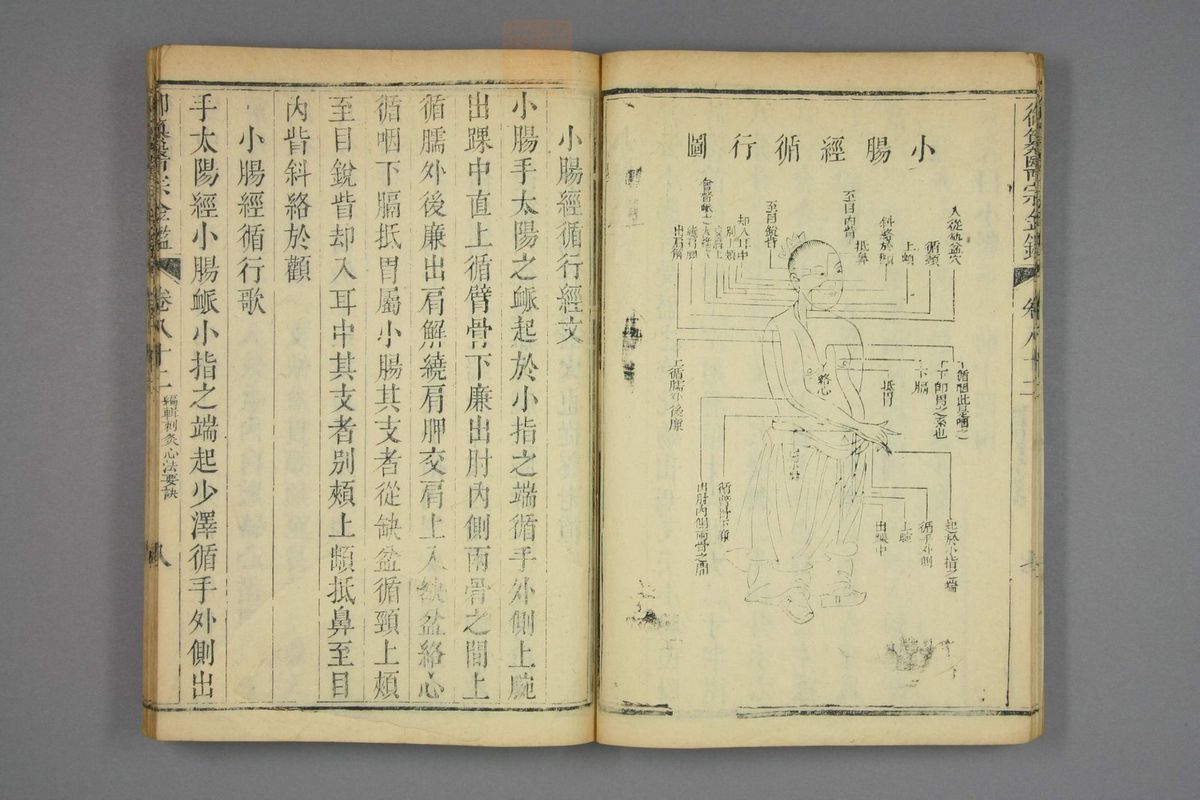 小腸經循行圖
入從缺盆穴
循頸
上頰
斜絡於顴
抵鼻
至目內眥
至目銳眥
却入耳中
別上頰
交肩上
繞肩胛
出肩解
上循臑外後廉
循咽此是咽之
下即胃之系也
下膈
抵胃
絡心
循臂骨下廉
出肘內側兩骨之間
起於小指之端
循手外側
上腕
出踝中
御纂醫宗金鑑
卷八十二
小腸經循行經文
小腸手太陽之䘑起於小指之端循手外側上腕
出踝中直上循臂骨下廉出肘內側兩骨之間上
循臑外後廉出肩解繞肩胛交肩上入缺盆絡心
循咽下膈抵胃屬小腸其支者從缺盆循頸上頰
至目銳眥却入耳中其支者別頰上䪼抵鼻至目
內眥斜絡於顴
小腸經循行歌
手太陽經小腸䘑小指之端起少澤循手外側出
御纂醫宗金鑑
卷八十二
編輯刺灸心法要訣
八